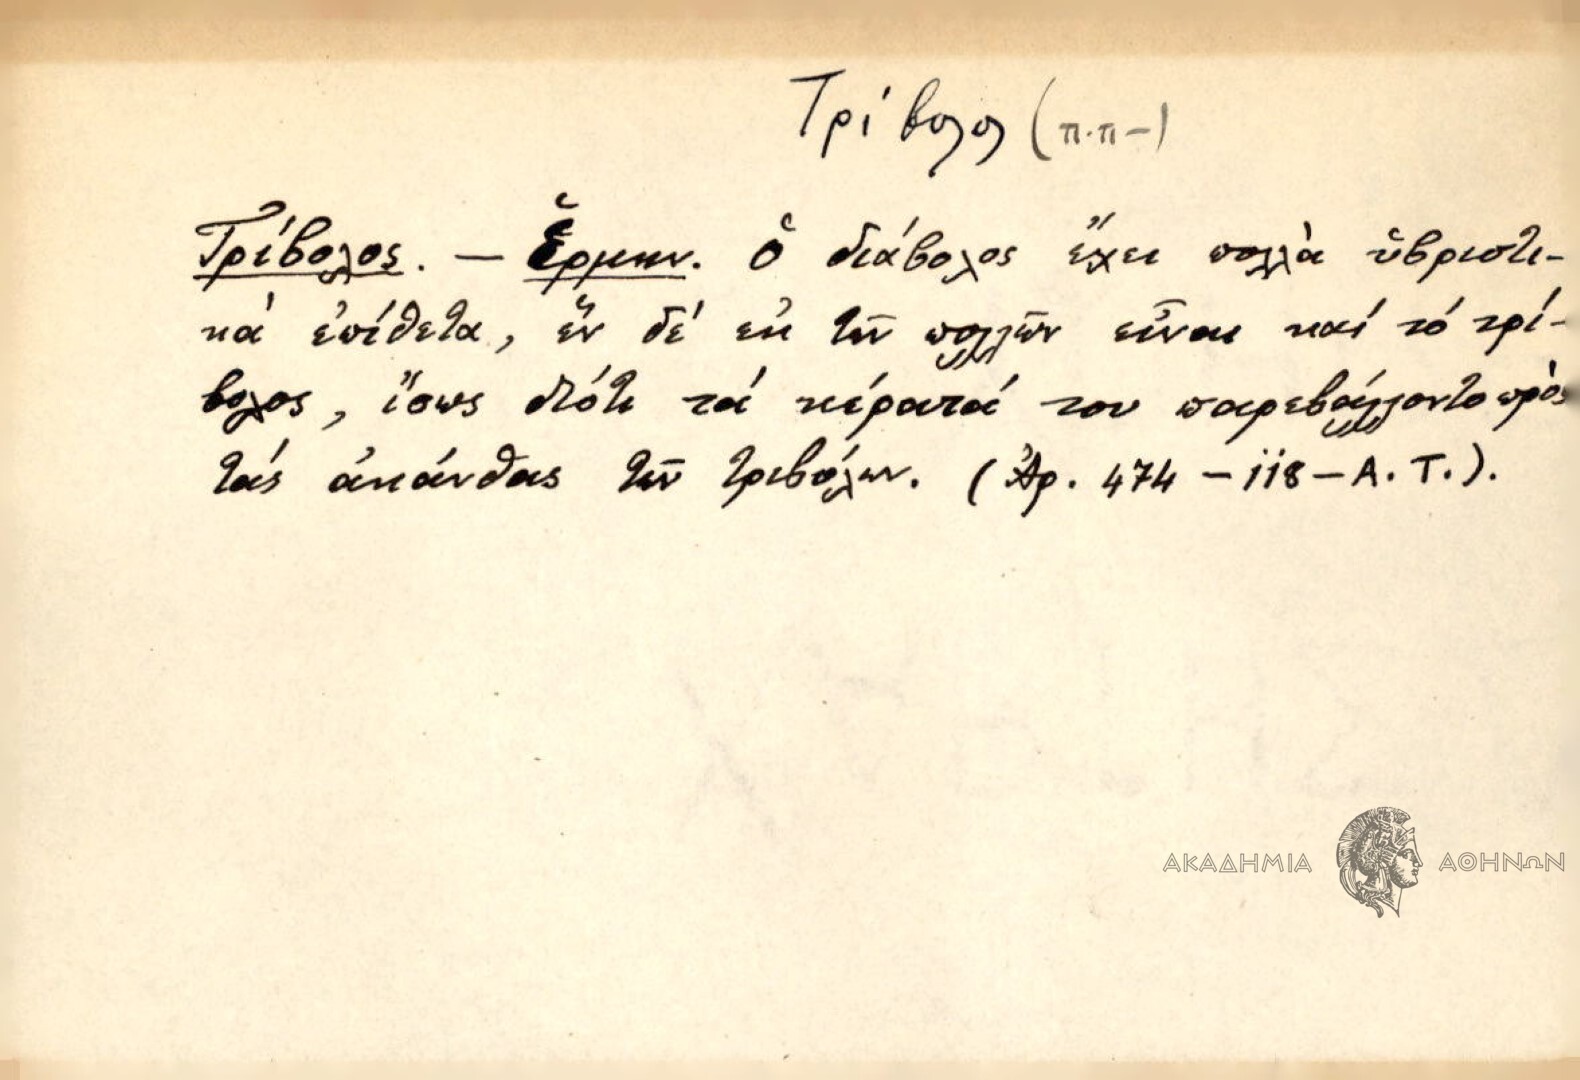 Τρίβολος (π.π-)
Τρίβολος. — Ἑρμην. Ὁ διάβολος ἔχει πολλὰ ὑβριστι-
κά ἐπίθετα, ἕν δέ ἐκ τῶν πολλῶν εἶναι καί τό τρί-
βολος, ἴσως διότι τά κέρατά του παρεβάλλοντο πρὸς
τάς ἀκάνθας τῶν τριβόλων. (Ἀρ. 474 – 118 – Α. Τ.).
ΑΚΑΔΗΜΙΑ ΑΘΗΝΩΝ